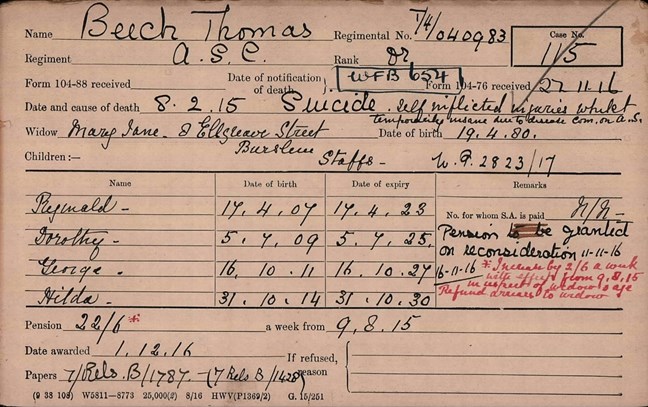 Name Beech Thomas Regimental No. T/4/040983 Case No. 115
Regiment A.S.C. Rank Dr
Form 104-88 received Date of notification of death WFB 654 Form 104-76 received 27.11.16
Date and cause of death 8.2.15 Suicide. Self inflicted injuries whilst
temporarily insane due to disease com. on A.S.
Widow Mary Jane - 8 Ellgreave Street Date of birth 19.4.80.
Burslem
Children :— Staffs - W.P. 2823/17
Name Date of birth Date of expiry Remarks
Reginald - 17.4.07 17.4.23 No. for whom S.A. is paid N/N-
Dorothy - 5.7.09 5.7.25 Pension to be granted
on reconsideration 11-11-16
George - 16.10.11 16.10.27 16-11-16 * Increase by 2/6 a week
with effect from 9.8.15
in respect of widow's age
Hilda - 31.10.14 31.10.30 Refund arrears to widow
Pension 22/6 * a week from 9.8.15
Date awarded 1.12.16 If refused, reason
Papers 7/Rels.B/1787- (7 Rels B/1428)
(9 38 103) W5811—8773 25,000(2) 8/16 HWV(P1369/2) G. 15/251